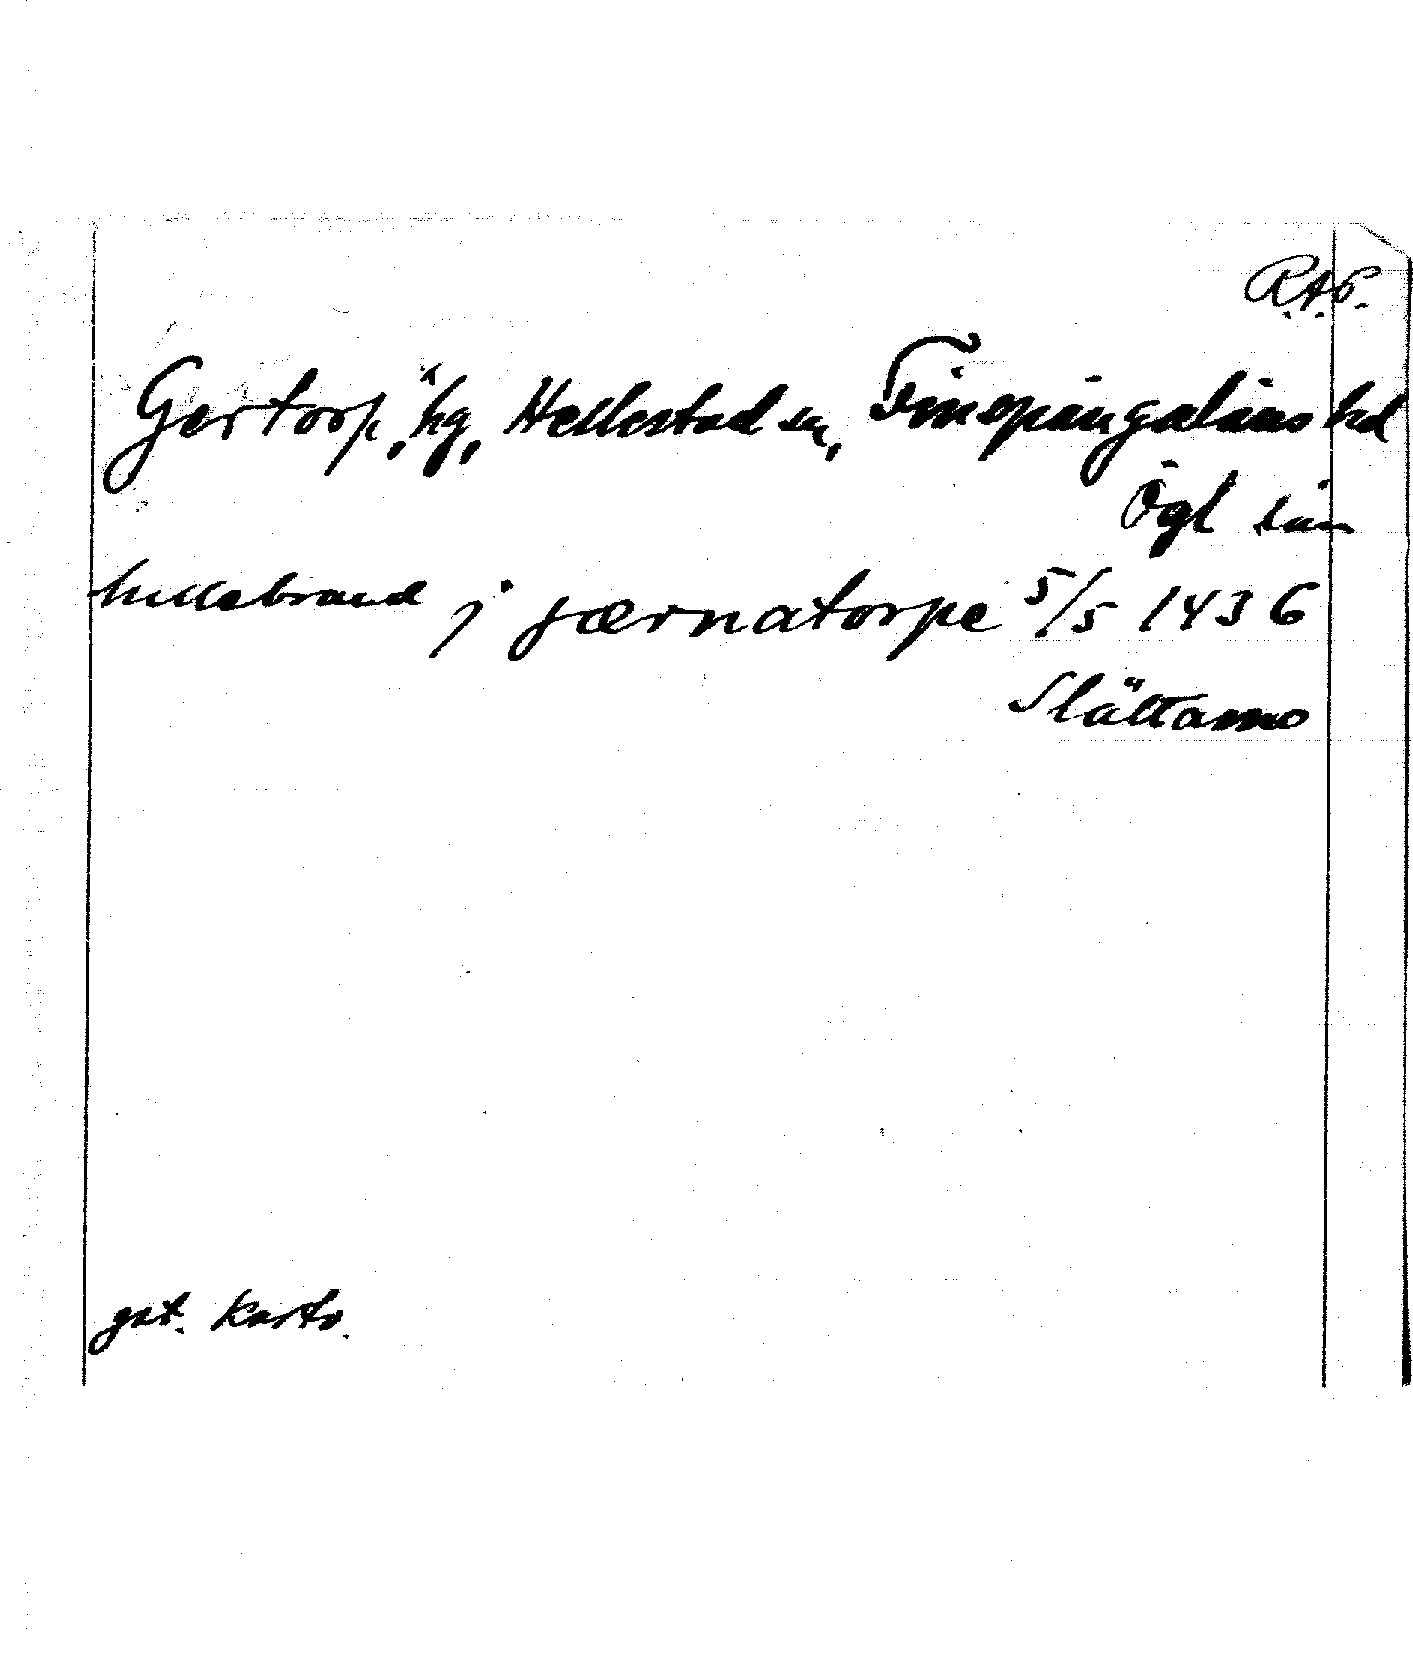 R.A.P.
Gertorp, hg, Hellestad sn, Finspångaläns hd
Ögl län
hellebrand j jærnatorpe 5/5 1436
Slättamo
gst. karta.